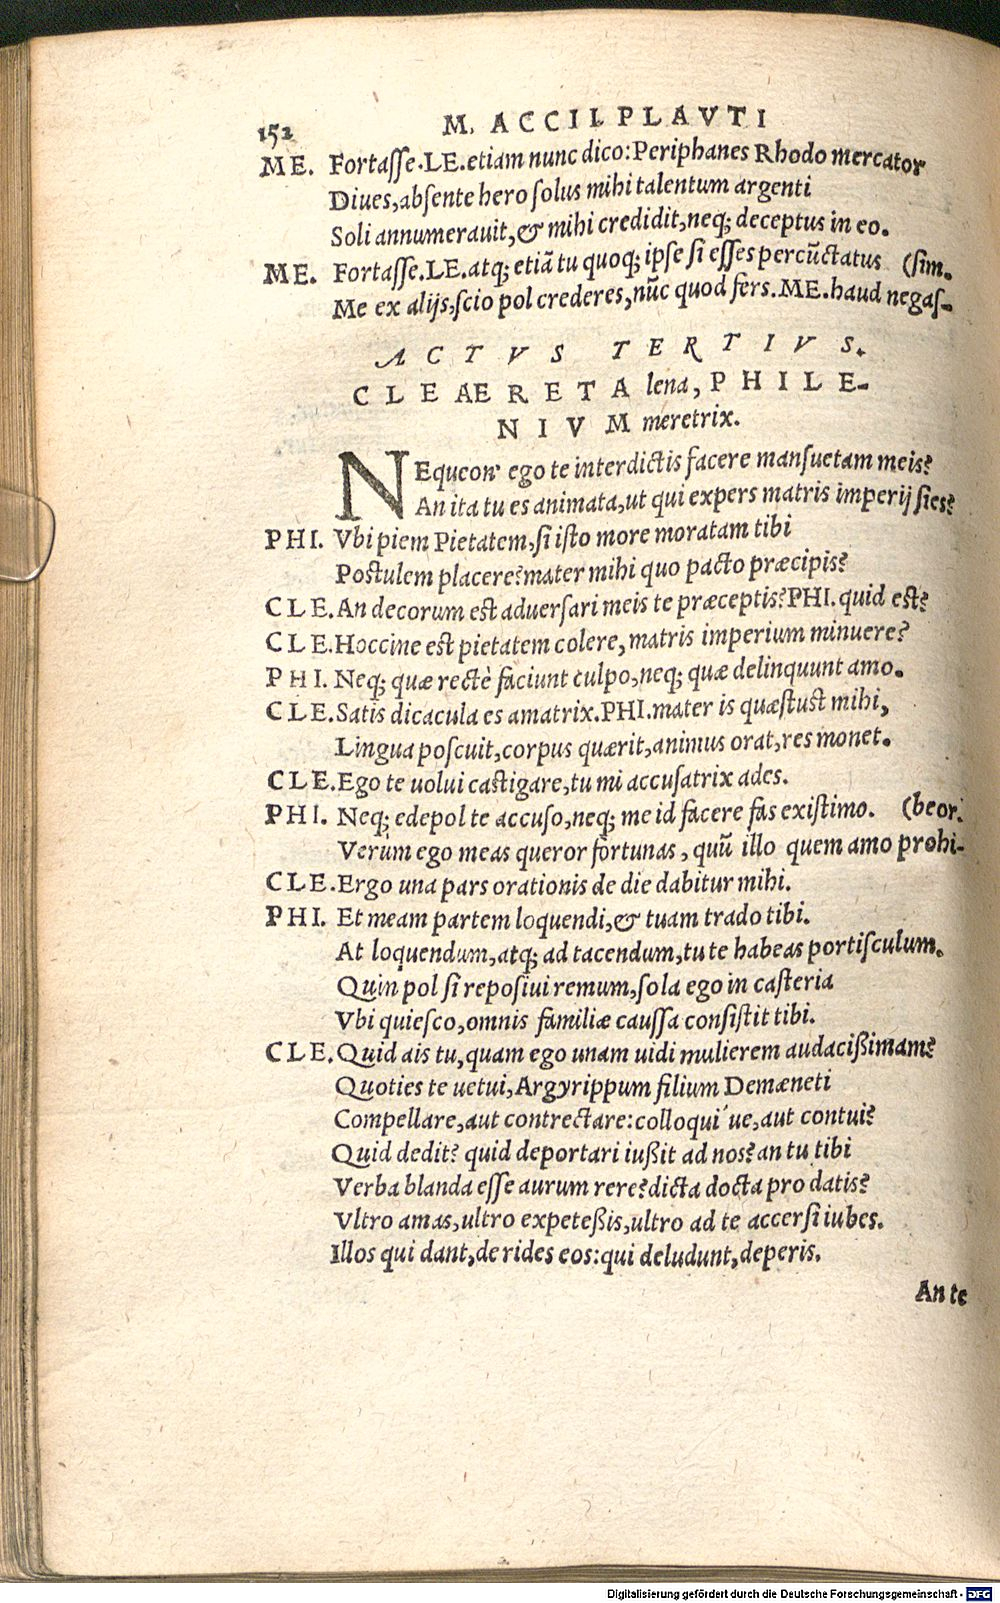 152
M. ACCII PLAVTI
ME. Fortasse. LE. etiam nunc dico: Periphanes Rhodo mercator
Diues, absente hero solus mihi talentum argenti
Soli annumerauit, & mihi credidit, neq; deceptus in eo.
ME. Fortasse. LE. atq; etiã tu quoq; ipse si esses percũctatus (sim.
Me ex alijs, scio pol crederes, nũc quod fers. ME. haud negas-
ACTVS TERTIVS.
CLEAERETA lena, PHILE-
NIVM meretrix.
NEqueon' ego te interdictis facere mansuetam meis?
An ita tu es animata, ut qui expers matris imperij sies?
PHI. Vbi piem Pietatem, si isto more moratam tibi
Postulem placere? mater mihi quo pacto præcipis?
CLE. An decorum est aduersari meis te præceptis? PHI. quid est?
CLE. Hoccine est pietatem colere, matris imperium minuere?
PHI. Neq; quæ rectè faciunt culpo, neq; quæ delinquunt amo.
CLE. Satis dicacula es amatrix. PHI. mater is quæstust mihi,
Lingua poscuit, corpus quærit, animus orat, res monet.
CLE. Ego te uolui castigare, tu mi accusatrix ades.
PHI. Neq; edepol te accuso, neq; me id facere fas existimo. (beor.
Verùm ego meas queror fortunas, quũ illo quem amo prohi-
CLE. Ergo una pars orationis de die dabitur mihi.
PHI. Et meam partem loquendi, & tuam trado tibi.
At loquendum, atq; ad tacendum, tute habeas portisculum.
Quin pol si reposiui remum, sola ego in casteria
Vbi quiesco, omnis familiæ caussa consistit tibi.
CLE. Quid ais tu, quam ego unam uidi mulierem audacißimam?
Quoties te uetui, Argyrippum filium Demæneti
Compellare, aut contrectare: colloqui´ue, aut contui?
Quid dedit? quid deportari iußit ad nos? an tu tibi
Verba blanda esse aurum rere? dicta docta pro datis?
Vltro amas, ultro expeteßis, ultro ad te accersi iubes.
Illos qui dant, derides eos: qui deludunt, deperis.
Ante
Digitalisierung gefördert durch die Deutsche Forschungsgemeinschaft - DFG